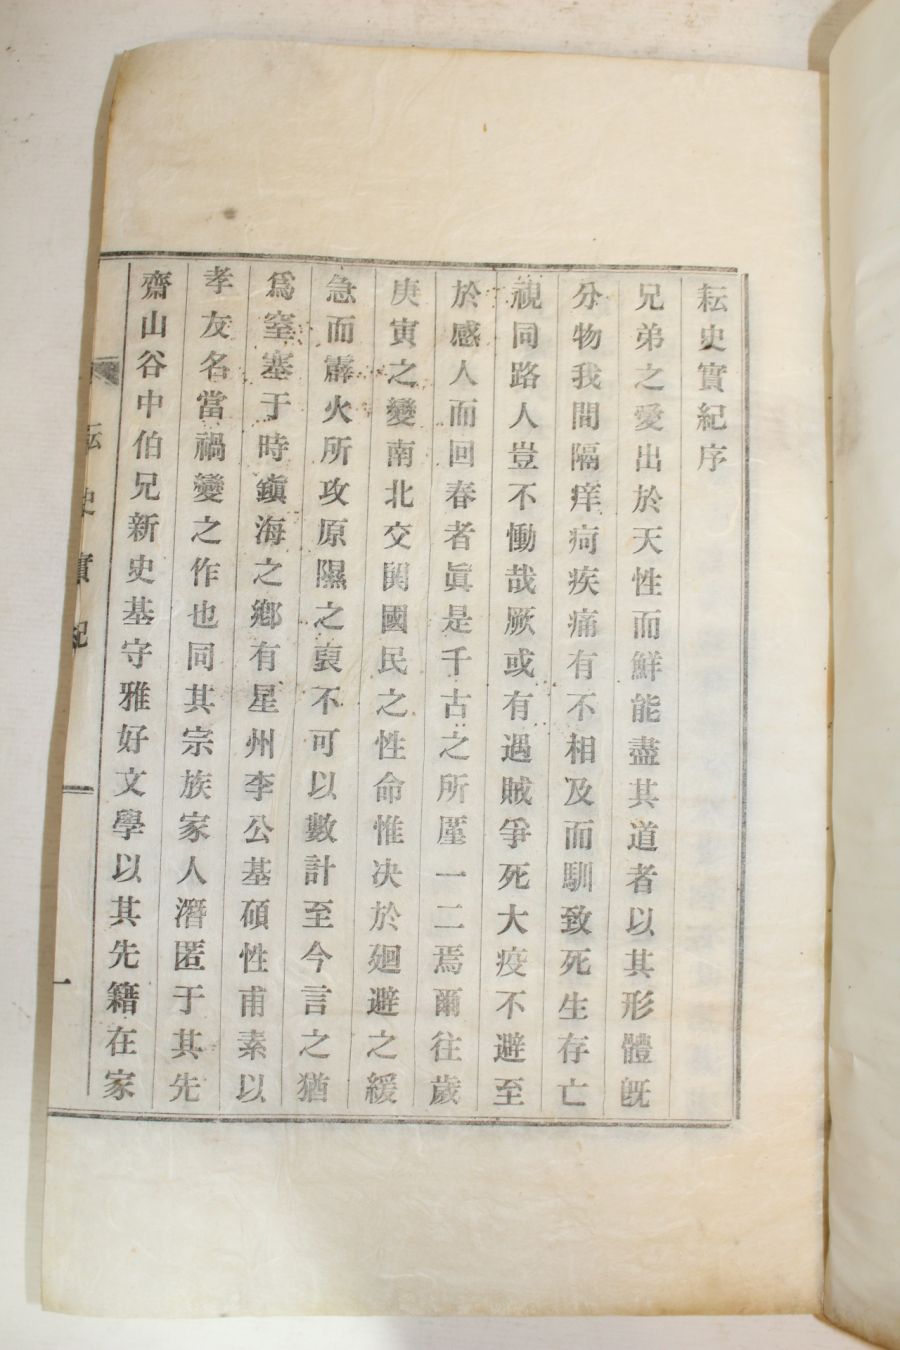 耘史實紀序
兄弟之愛出於天性而鮮能盡其道者以其形體旣
分物我間隔痒疴疾痛有不相及而馴致死生存亡
視同路人豈不慟哉厥或有遇賊爭死大疫不避至
於感人而回春者眞是千古之所罕一二焉爾往歲
庚寅之變南北交閧國民之性命惟決於廻避之緩
急而霹火所攻原隰之裒不可以數計至今言之猶
爲窒塞于時鎭海之鄕有星州李公基碩性甫素以
孝友名當禍變之作也同其宗族家人潛匿于其先
齋山谷中伯兄新史基守雅好文學以其先籍在家
耘史實紀
一